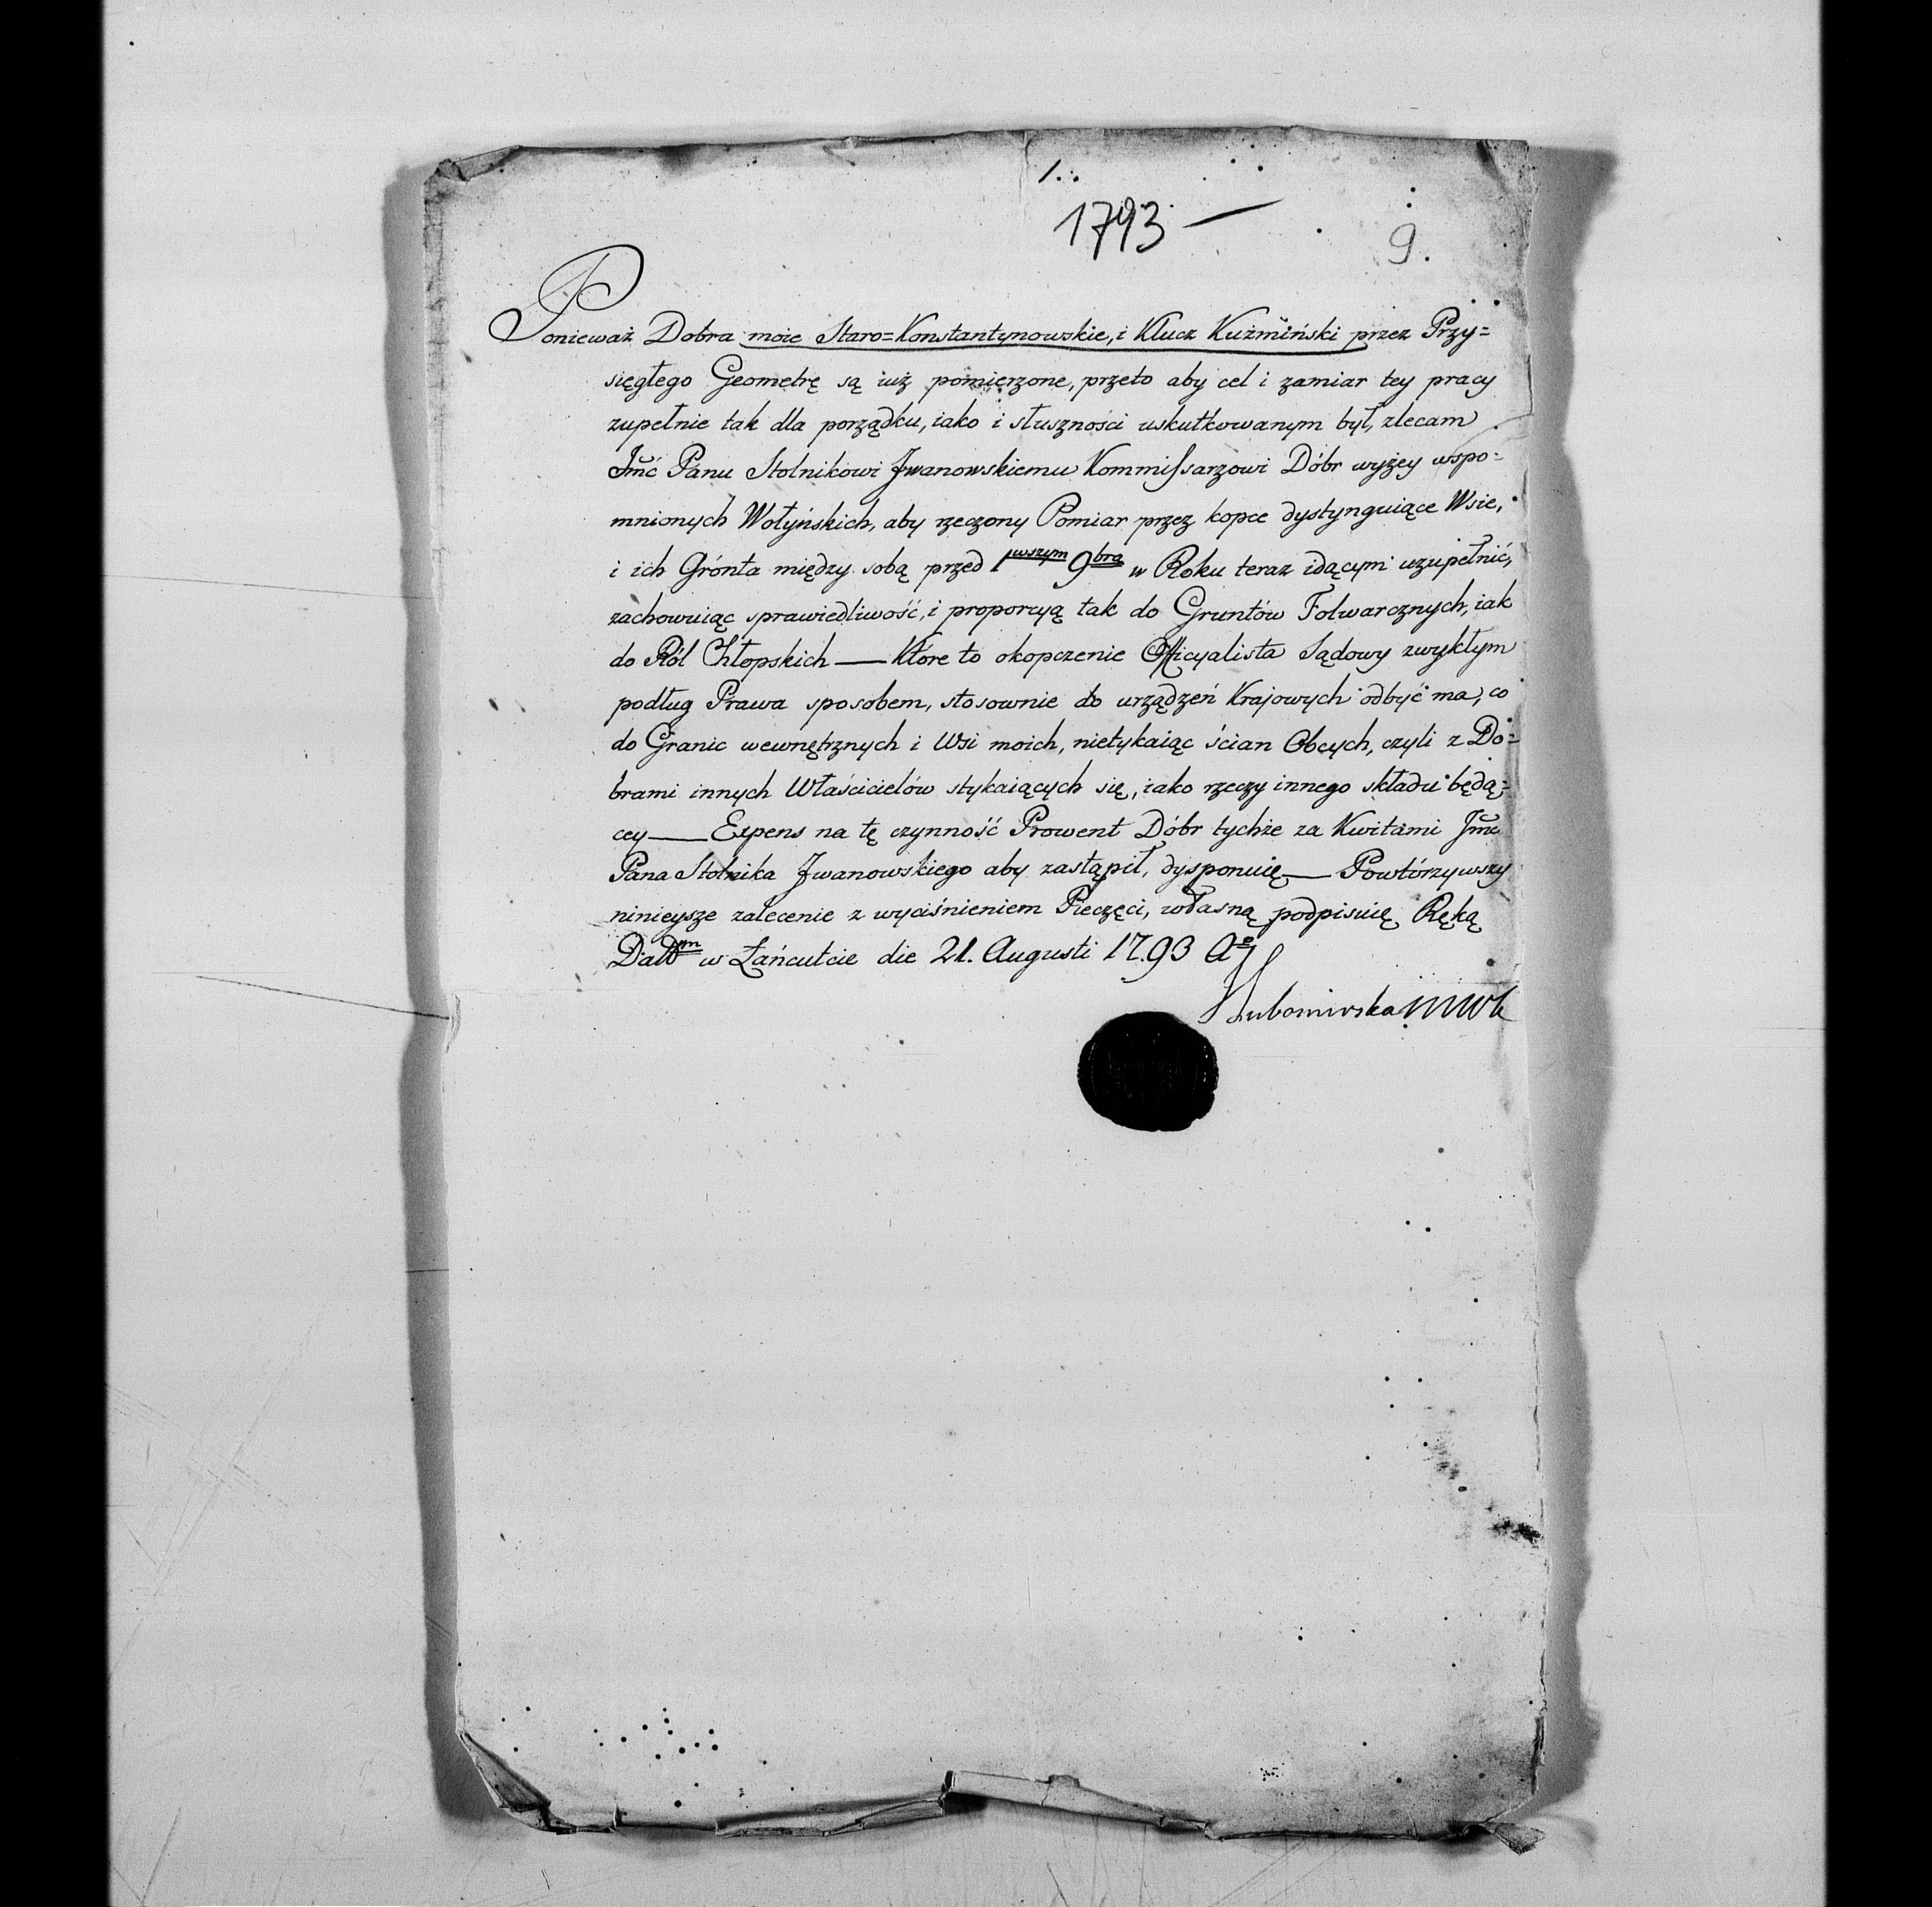 1.
1793 —
9.
Ponieważ Dobra moie Staro=Konstantynowskie, i Klucz Kuźmiński przez Przy=
sięgłego Geometrę są iuż pomierzone, przeto aby cel i zamiar tey pracy
zupełnie tak dla porządku, iako i słuszności uskutkowanym był, zlecam
Jmć Panu Stolnikowi Jwanowskiemu Kommissarzowi Dóbr wyżey wspo=
mnionych Wołyńskich, aby rzeczony Pomiar przez kopce dystynguiące Wsie,
i ich Grónta między sobą przed 1wszym 9bra w Roku teraz idącym uzupełnić,
zachowuiąc sprawiedliwość, i proporcyą tak do Gruntów Folwarcznych, iak
do Ról Chłopskich — Które to okopczenie Officyalista Sądowy zwykłym
podług Prawa sposobem, stosownie do urządzeń Krajowych odbyć ma, co
do Granic wewnętrznych i Wsi moich, nietykaiąc ścian Obcych, czyli z Do=
brami innych Właścicielów stykaiących się, iako rzeczy innego składu będą=
cey — Expens na tę czynność Prowent Dóbr tychże za Kwitami Jmć
Pana Stolnika Jwanowskiego aby zastąpił, dysponuię — Powtórzywszy
ninieysze zalecenie z wyciśnieniem Pieczęci, własną podpisuię Ręką
Dattm w Łańcucie die 21. Augusti 1793 Ao
Lubomirska